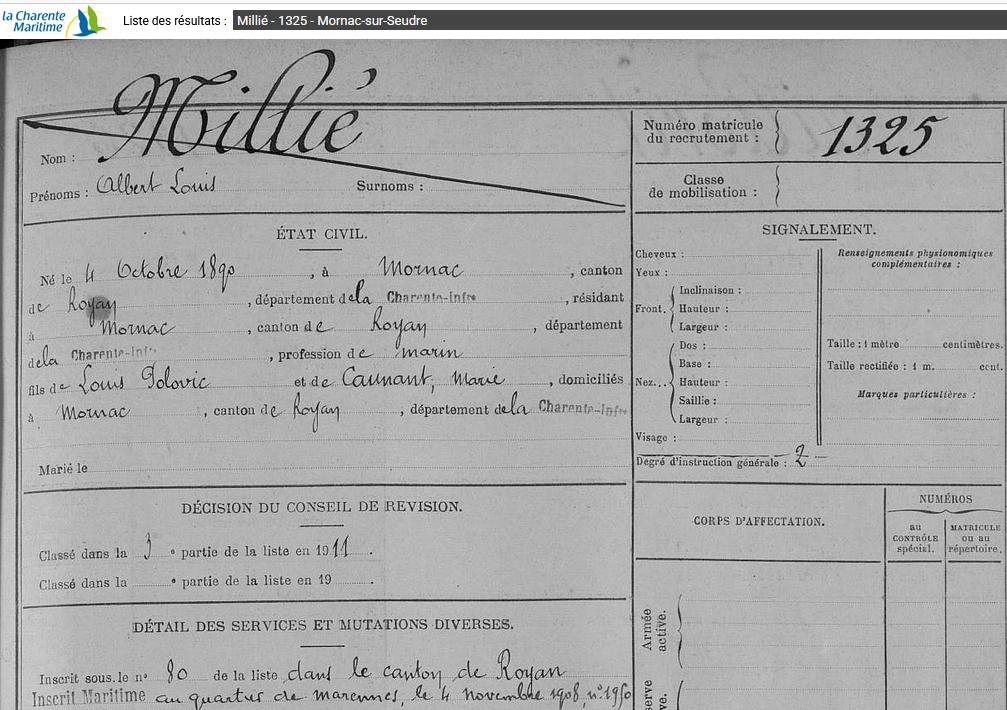 la Charente
Maritime
Liste des résultats : Millié - 1325 - Mornac-sur-Seudre
Millié
Nom :
Prénoms : Albert Louis Surnoms :
Numéro matricule
du recrutement : 1325
Classe
de mobilisation :
ÉTAT CIVIL.
Né le 4 Octobre 1890, à Mornac, canton
de Royan, département de la Charente-Infre, résidant
à Mornac, canton de Royan, département
de la Charente-Infre, profession de marin
fils de Louis et de Caunant, Marie, domiciliés
à Mornac, canton de Royan, département de la Charente-Infre
Marié le
SIGNALEMENT.
Cheveux :
Yeux :
Front. Inclinaison :
Hauteur :
Largeur :
Nez... Dos :
Base :
Hauteur :
Saillie :
Largeur :
Visage :
Degré d'instruction générale : 2
Renseignements physionomiques
complémentaires :
Taille : 1 mètre centimètres.
Taille rectifiée : 1 m. cent.
Marques particulières :
DÉCISION DU CONSEIL DE REVISION.
Classé dans la 3e partie de la liste en 1911.
Classé dans la e partie de la liste en 19 .
DÉTAIL DES SERVICES ET MUTATIONS DIVERSES.
Inscrit sous le no 80 de la liste dans le canton de Royan
Inscrit Maritime au quartier de marennes, le 4 novembre 1908, no 1950
CORPS D'AFFECTATION.
NUMÉROS
au
CONTRÔLE
spécial.
MATRICULE
ou au
répertoire.
Armée
active.